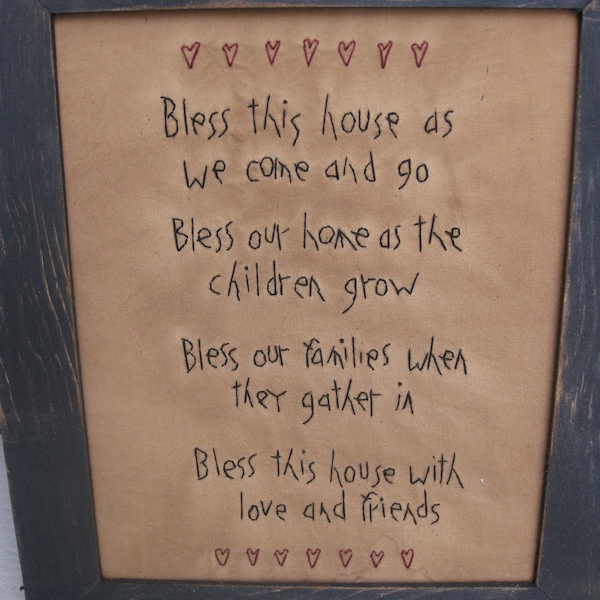 Bless this house as
we come and go
Bless our home as the
children grow
Bless our families when
they gather in
Bless this house with
love and friends